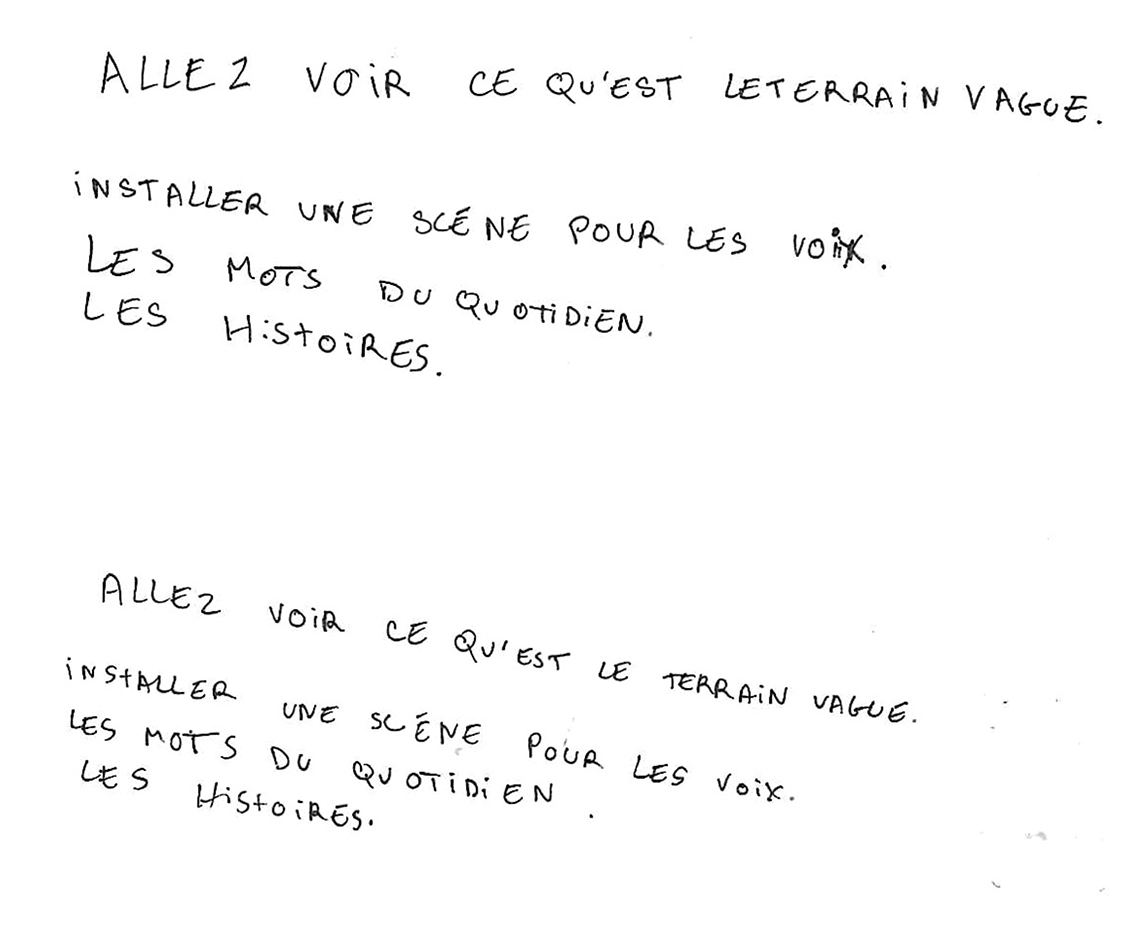 ALLEZ VOiR CE QU'EST LETERRAiN VAGUE.
iNSTALLER UNE SCÉNE POUR LES VOiX.
LES MOTS DU QUOTiDiEN.
LES HiStOiRES.
ALLEZ VOiR CE QU'EST LE TERRAiN VAGUE.
iNStALLER UNE SCÉNE POUR LES VOiX.
LES MOTS DU QUOTiDiEN.
LES HiStOiRES.